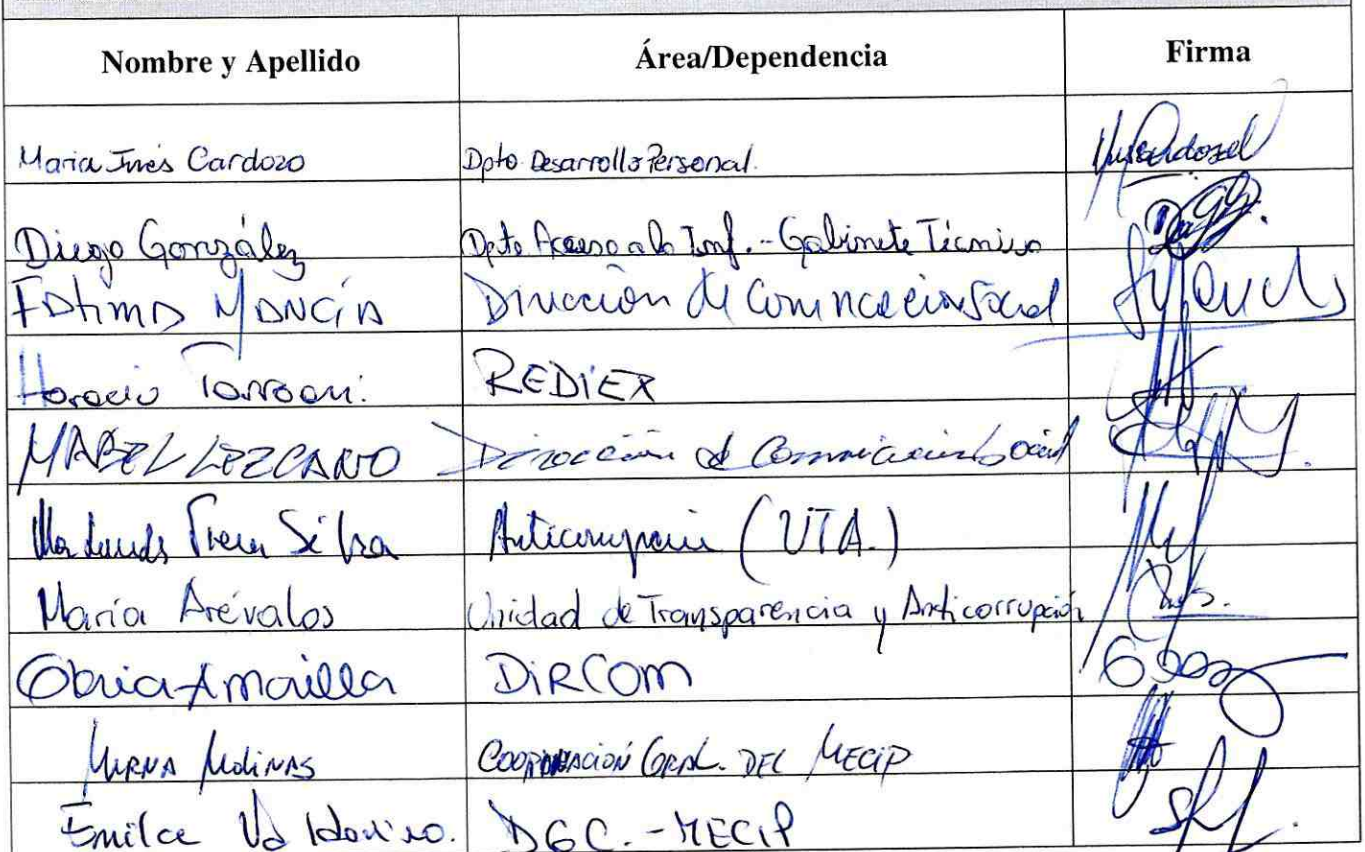 Nombre y Apellido Área/Dependencia Firma
Maria Inés Cardozo Dpto Desarrollo Personal.
Diego González Dpto Acceso a la Inf. - Gabinete Técnico
Fatima Mancía Dirección de Comunicación Social
Horacio REDIEX
MABEL LEZCANO Dirección de Comunicación Social
Silva Anticorrupción (UTA.)
María Arévalos Unidad de Transparencia y Anticorrupción
Amarilla DIRCOM
MIRNA MOLINAS COORDINACIÓN GRAL. DEL MECIP
Emilce Valdovino. DGC. - MECIP